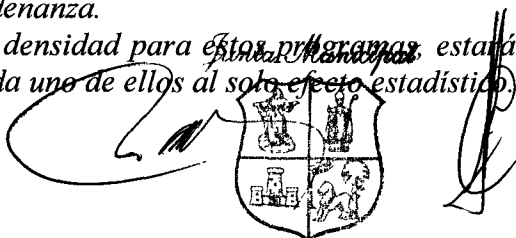 denanza.
densidad para estos programas, estará
Junta Municipal
da uno de ellos al solo efecto estadístico.